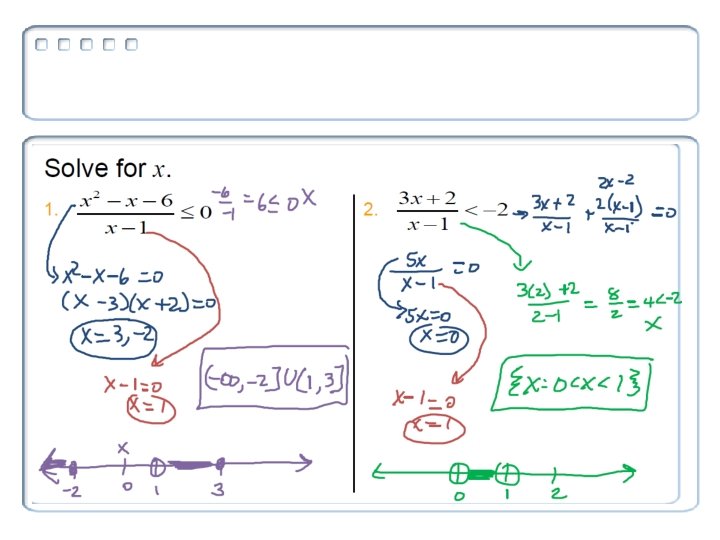 Solve for x.
1. (x² - x - 6)/(x - 1) ≤ 0
-6/-1 = 6 ≤ 0 X
x² - x - 6 = 0
(x - 3)(x + 2) = 0
x = 3, -2
x - 1 = 0
x = 1
(-∞, -2] ∪ (1, 3]
x
-2 0 1 3
2. (3x + 2)/(x - 1) < -2 → (3x + 2)/(x - 1) + 2(x - 1)/(x - 1) = 0
2x - 2
5x/(x - 1) = 0
5x = 0
x = 0
x - 1 = 0
x = 1
(3(2) + 2)/(2 - 1) = 8/2 = 4 < -2
x
{x: 0 < x < 1}
0 1 2